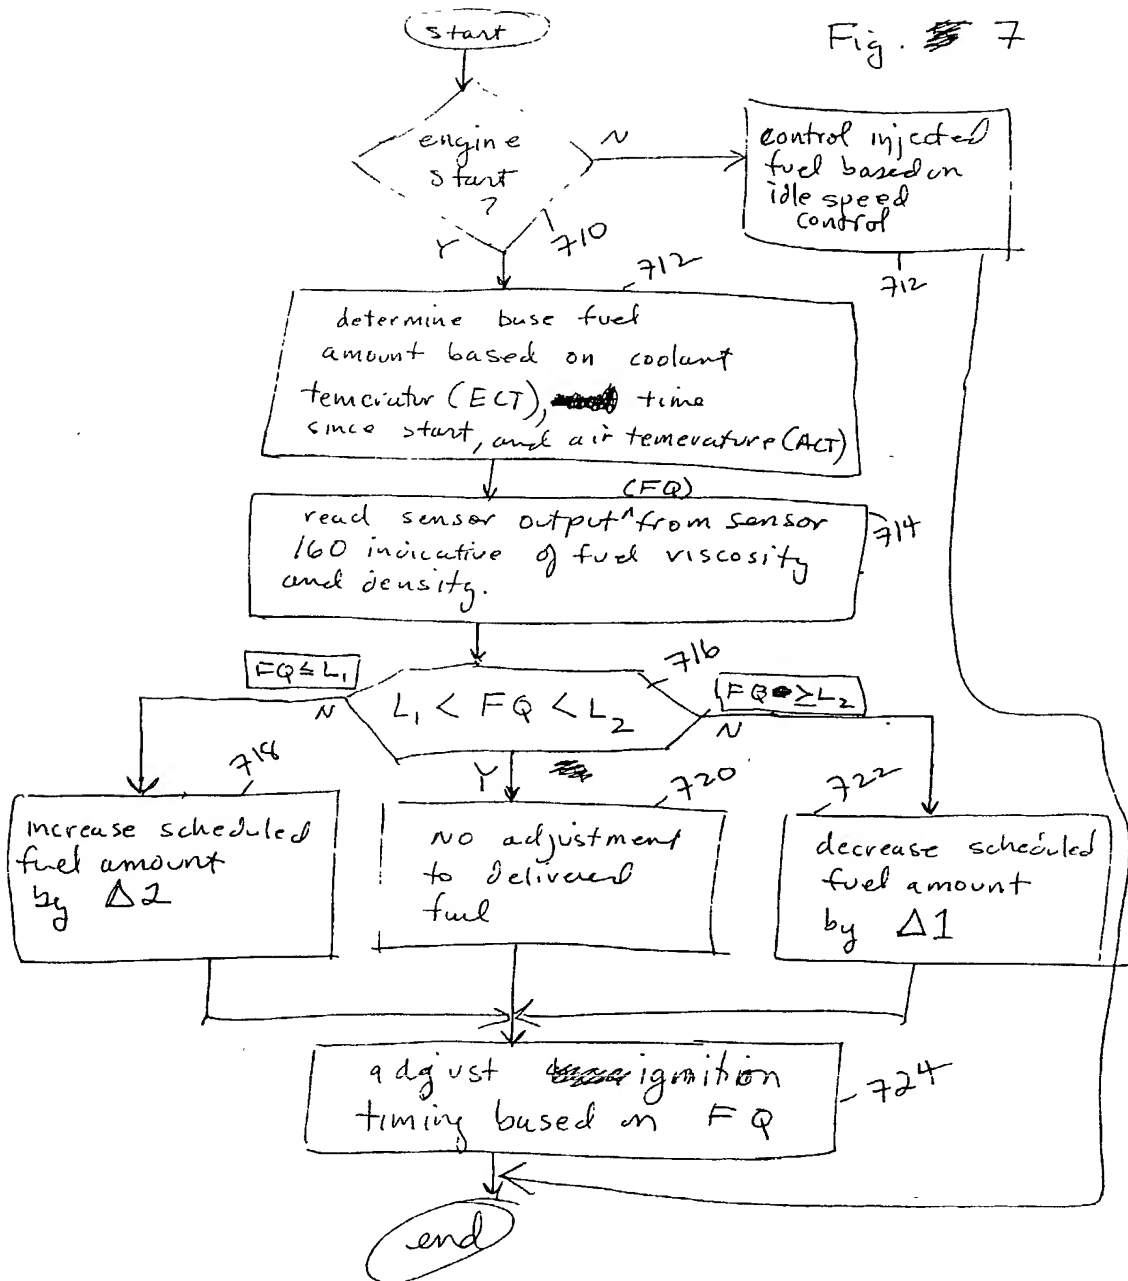 Fig. 7
start
engine
start
?
N
Y
710
control injected
fuel based on
idle speed
control
712
712
determine base fuel
amount based on coolant
temeriatur (ECT), time
since start, and air temevature (ACT)
(FQ)
read sensor output ^ from sensor
160 indicative of fuel viscosity
and density.
714
716
FQ ≤ L₁
L₁ < FQ < L₂
FQ ≥ L₂
N
N
Y
718
increase scheduled
fuel amount
by Δ2
720
No adjustment
to delivered
fuel
722
decrease scheduled
fuel amount
by Δ1
adjust ignition
timing based on FQ
724
end